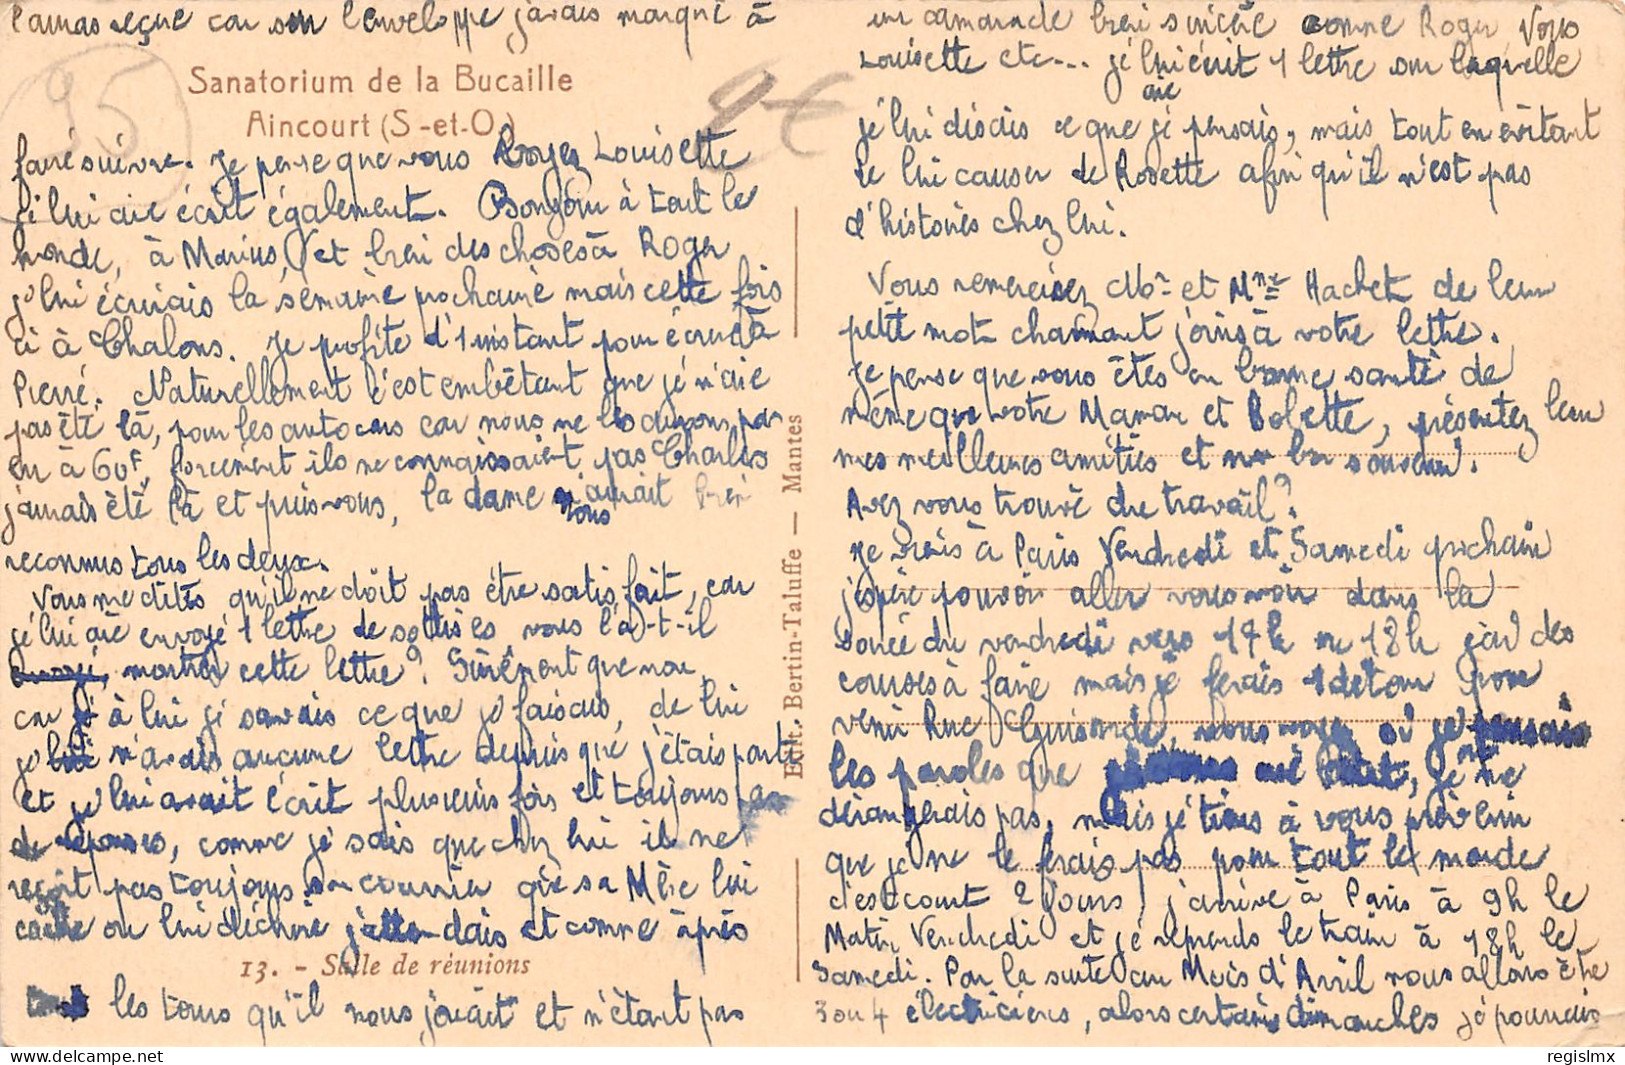 l'auras reçue car sur l'enveloppe j'avais marqué à
Sanatorium de la Bucaille
Aincourt (S-et-O.)
95
2€
faire suivre. Je pense que vous voyez Louisette
je lui aie écrit également. Bonjour à tout le
monde, à Marius, et bien des choses à Roger
j'lui écrirais la semaine prochaine mais cette fois
ci à Chalons. Je profite d'1 instant pour écrire à
Pierre. Naturellement c'est embêtant que je n'aie
pas été là, pour les autocars car nous ne les aurons pas
eu à 60F, forcément ils ne connaissaient pas Charles
jamais été là et puis vous, la dame vous aurait bien
reconnus tous les deux.
Vous me dites qu'il ne doit pas être satisfait, car
je lui aie envoyé 1 lettre de sottises vous l'a-t-il
montrer cette lettre? Sûrement que non,
car à lui je savais ce que j'faisais, de lui
j' n'avais aucune lettre depuis que j'étais parti
et j'lui avait écrit plusieurs fois et toujours pas
de réponses, comme je sais que chez lui il ne
reçoit pas toujours son courrier que sa Mère lui
cache ou lui déchire j'attendais et comme après
13. - Salle de réunions
les tours qu'il nous jouait et n'étant pas
Edit. Bertin-Taluffe — Mantes
un camarade bien sincère comme Roger, Vous
Louisette etc... je lui écrit 1 lettre sur laquelle
aie
je lui disais ce que je pensais, mais tout en évitant
de lui causer de Rosette afin qu'il n'est pas
d'histoires chez lui.
Vous remercierez Mr et Mme Hachet de leur
petit mot charmant joins à votre lettre.
Je pense que vous êtes en bonne santé de
même que votre Maman et Bolette, présentez leur
mes meilleures amitiés et mon bon souvenir.
Avez vous trouvé du travail?
Je viens à Paris Vendredi et Samedi prochain
j'espère pouvoir aller vous voir dans la
soirée du vendredi vers 17h ou 18h j'ai des
courses à faire mais je ferais 1 détour pour
venir Rue vous voyez si je pensais
les paroles que je ne
dérangerais pas, mais je tiens à vous prévenir
que je ne le ferais pas pour tout le monde
c'est court 2 jours, j'arrive à Paris à 9h le
Matin Vendredi et je reprends le train à 18h le
Samedi. Par la suite au Mois d'Avril nous allons être
3 ou 4 électriciens, alors certains dimanches je pourrais
regislmx